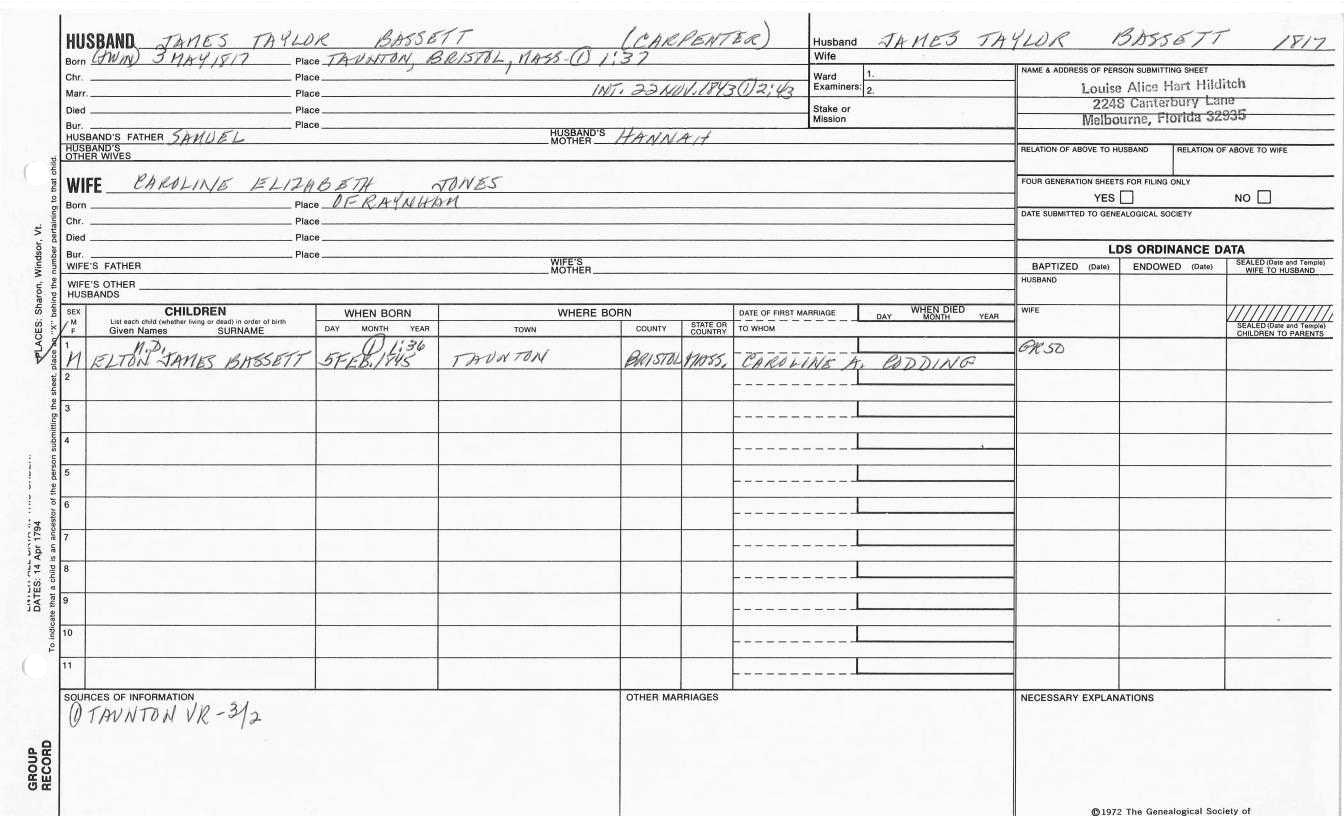 HUSBAND JAMES TAYLOR BASSETT (CARPENTER)
Born (TWIN) 3 MAY 1817 Place TAUNTON, BRISTOL, MASS-① 1:37
Chr. Place
Marr. Place INT. 22 NOV. 1843 ① 2:43
Died Place
Bur. Place
HUSBAND'S FATHER SAMUEL HUSBAND'S MOTHER HANNAH
HUSBAND'S OTHER WIVES
Husband JAMES TAYLOR BASSETT 1817
Wife
Ward Examiners: 1.
2.
Stake or Mission
NAME & ADDRESS OF PERSON SUBMITTING SHEET
Louise Alice Hart Hilditch
2248 Canterbury Lane
Melbourne, Florida 32935
RELATION OF ABOVE TO HUSBAND RELATION OF ABOVE TO WIFE
FOUR GENERATION SHEETS FOR FILING ONLY
YES NO
DATE SUBMITTED TO GENEALOGICAL SOCIETY
WIFE CAROLINE ELIZABETH JONES
Born Place OF RAYNHAM
Chr. Place
Died Place
Bur. Place
WIFE'S FATHER WIFE'S MOTHER
WIFE'S OTHER HUSBANDS
LDS ORDINANCE DATA
BAPTIZED (Date) ENDOWED (Date) SEALED (Date and Temple) WIFE TO HUSBAND
HUSBAND
WIFE
SEALED (Date and Temple) CHILDREN TO PARENTS
SEX M F
CHILDREN
List each child (whether living or dead) in order of birth
Given Names SURNAME
WHEN BORN
DAY MONTH YEAR
WHERE BORN
TOWN COUNTY STATE OR COUNTRY
DATE OF FIRST MARRIAGE
TO WHOM
WHEN DIED
DAY MONTH YEAR
1 M.D. ① 1:36
M ELTON JAMES BASSETT 5 FEB. 1845 TAUNTON BRISTOL MASS. CAROLINE A. CODDING
2
3
4
5
6
7
8
9
10
11
SOURCES OF INFORMATION
① TAUNTON VR-3/2
OTHER MARRIAGES
NECESSARY EXPLANATIONS
©1972 The Genealogical Society of
PLACES: Sharon, Windsor, Vt.
DATES: 14 Apr 1794
To indicate that a child is an ancestor of the person submitting the sheet, place an "X" behind the number pertaining to that child.
GROUP
RECORD